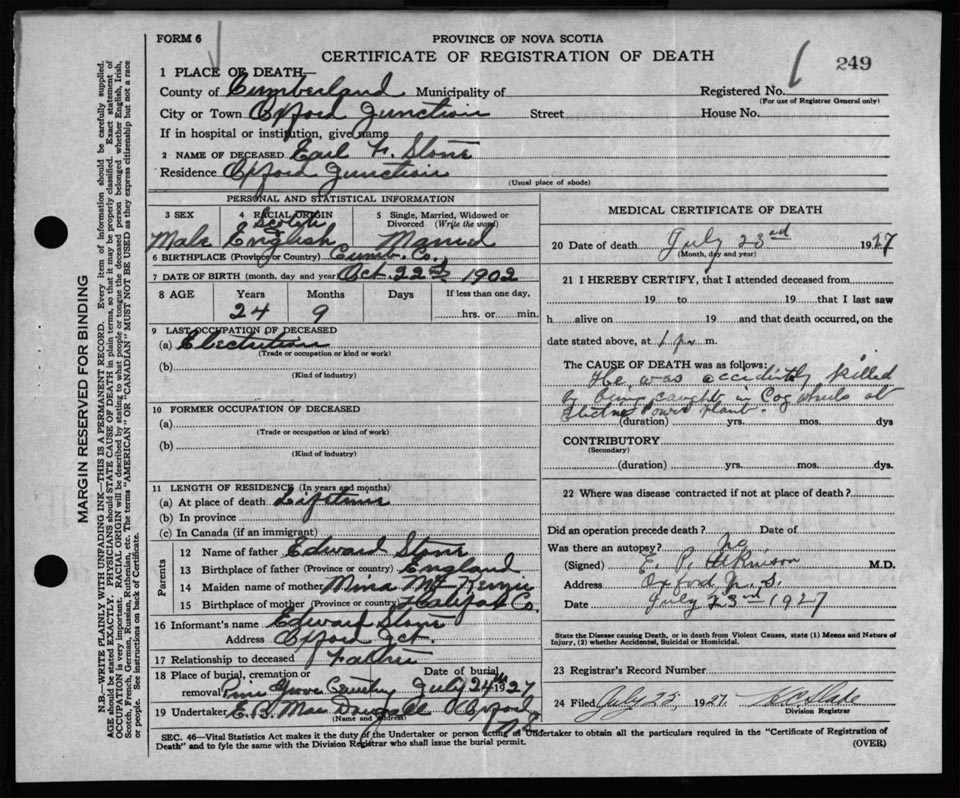 FORM 6
PROVINCE OF NOVA SCOTIA
CERTIFICATE OF REGISTRATION OF DEATH
249
1 PLACE OF DEATH—
County of Cumberland Municipality of
Registered No.
(For use of Registrar General only)
City or Town Oxford Junction Street
House No.
If in hospital or institution, give name
2 NAME OF DECEASED Earl F. Stone
Residence Oxford Junction
(Usual place of abode)
PERSONAL AND STATISTICAL INFORMATION
3 SEX
Male
4 RACIAL ORIGIN
Scotch
English
5 Single, Married, Widowed or
Divorced (Write the word)
Married
6 BIRTHPLACE (Province or Country) Cumb. Co.
7 DATE OF BIRTH (month, day and year) Oct. 22nd 1902
8 AGE Years Months Days If less than one day,
24 9 hrs. or min.
9 LAST OCCUPATION OF DECEASED
(a) Electrition
(Trade or occupation or kind or work)
(b)
(Kind of industry)
10 FORMER OCCUPATION OF DECEASED
(a)
(Trade or occupation or kind or work)
(b)
(Kind of industry)
11 LENGTH OF RESIDENCE (In years and months)
(a) At place of death Lifetime
(b) In province
(c) In Canada (if an immigrant)
Parents
12 Name of father Edward Stone
13 Birthplace of father (Province or country) England
14 Maiden name of mother Mina McKenzie
15 Birthplace of mother (Province or country) Halifax Co.
16 Informant's name Edward Stone
Address Oxford Jct.
17 Relationship to deceased Father
18 Place of burial, cremation or removal Pine Grove Cemetery
Date of burial July 24th 1927
19 Undertaker E. B. MacDougall Oxford
(Name and address) N.S
MEDICAL CERTIFICATE OF DEATH
20 Date of death July 23rd 1927
(Month, day and year)
21 I HEREBY CERTIFY, that I attended deceased from
19 to 19 that I last saw
h alive on 19 and that death occurred, on
date stated above, at 1 p. m.
The CAUSE OF DEATH was as follows:
He was accidently killed
by being caught in Cog wheels at
Electric Power Plant.
(duration) yrs. mos. dys
CONTRIBUTORY
(Secondary)
(duration) yrs. mos. dys.
22 Where was disease contracted if not at place of death?
Did an operation precede death? Date of
Was there an autopsy? No
(Signed) E. P. Atkinson M.D.
Address Oxford, N.S.
Date July 23rd 1927
State the Disease causing Death, or in death from Violent Causes, state (1) Means and Nature of
Injury, (2) whether Accidental, Suicidal or Homicidal.
23 Registrar's Record Number
24 Filed July 25 1927.
Division Registrar
SEC. 46—Vital Statistics Act makes it the duty of the Undertaker or person acting as Undertaker to obtain all the particulars required in the "Certificate of Registration of
Death" and to fyle the same with the Division Registrar who shall issue the burial permit.
(OVER)
MARGIN RESERVED FOR BINDING
N.B.—WRITE PLAINLY WITH UNFADING INK—THIS IS A PERMANENT RECORD. Every item of information should be carefully supplied.
AGE should be stated EXACTLY. PHYSICIANS should STATE CAUSE OF DEATH in plain terms, so that it may be properly classified. Exact statement of
OCCUPATION is very important. RACIAL ORIGIN will be described by stating to what people or tongue the deceased person belonged whether English, Irish,
Scotch, French, German, Russian, Ruthenian, etc. The terms "AMERICAN" OR "CANADIAN" MUST NOT BE USED as they express citizenship but not a race
or people. See instructions on back of Certificate.